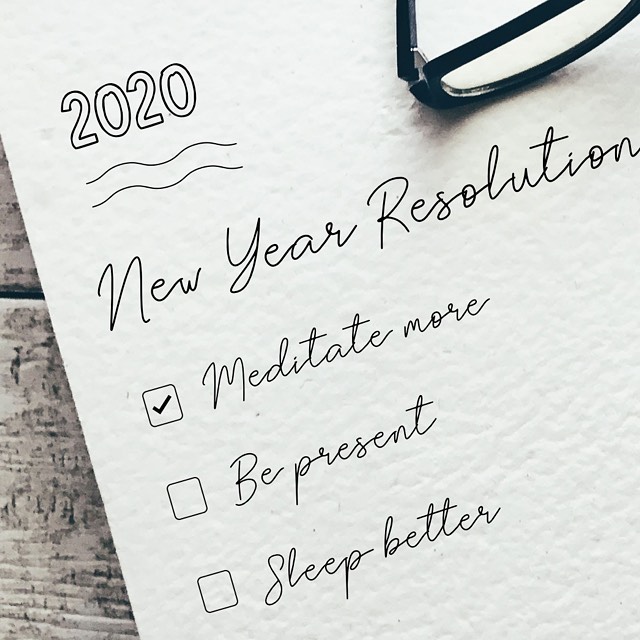 2020
New Year Resolution
Meditate more
Be present
Sleep better